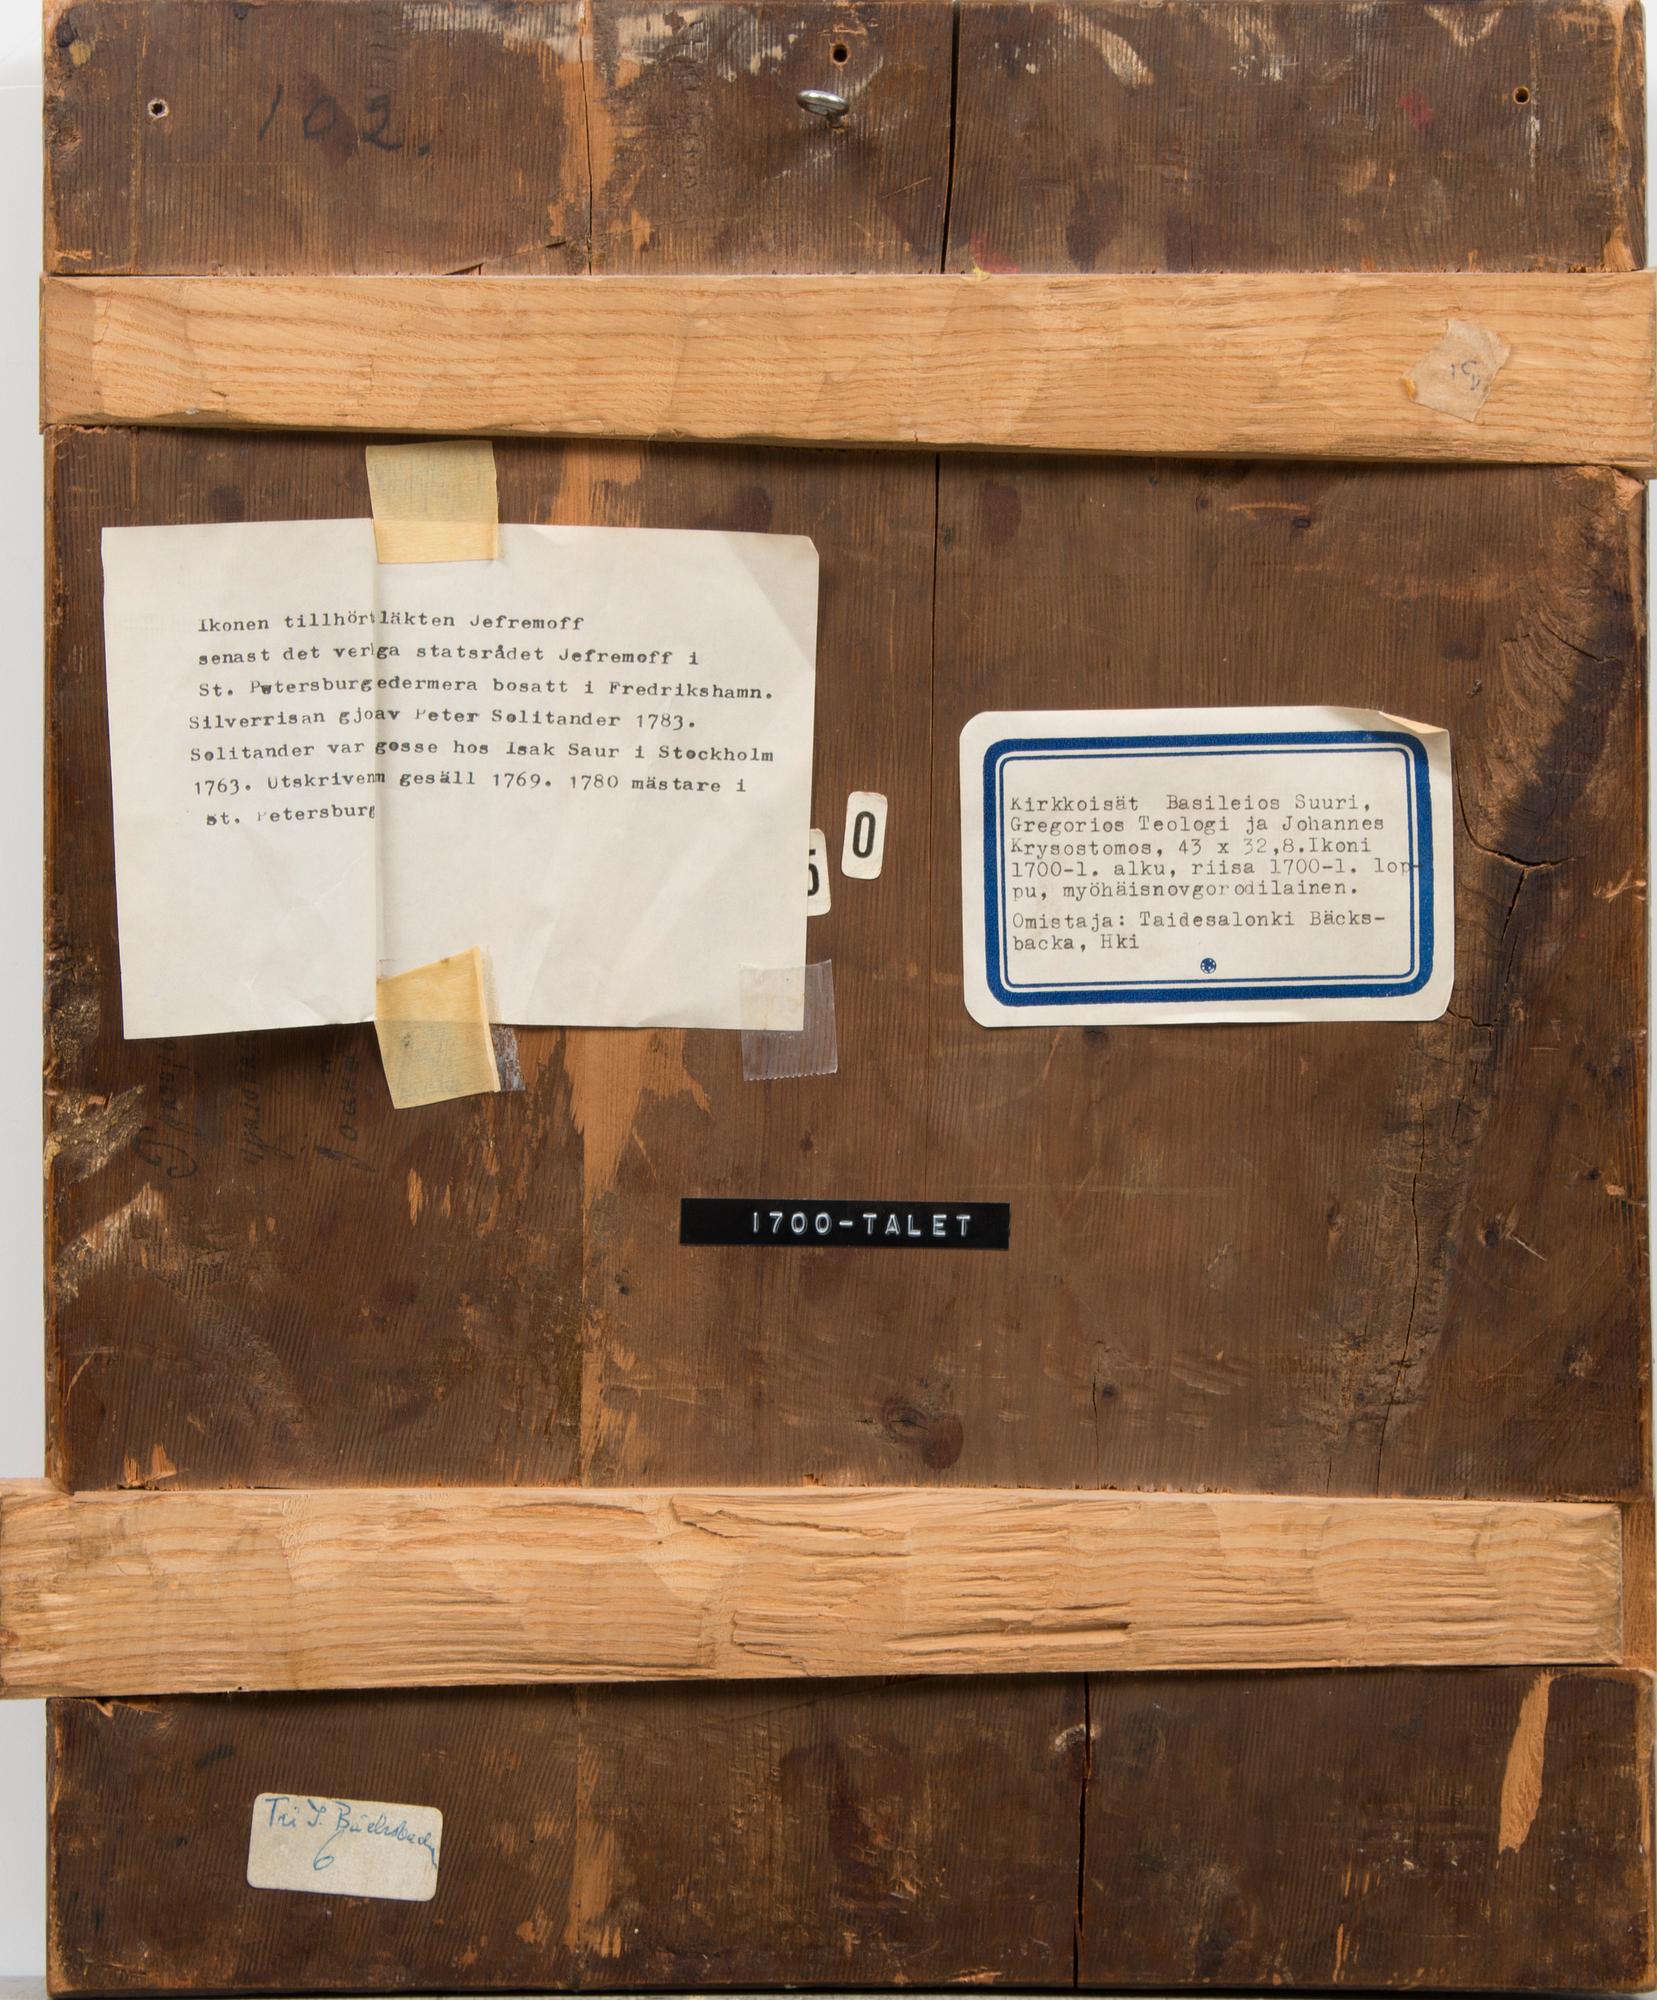 102.
Ikonen tillhört läkten Jefremoff
senast det verl ga statsrådet Jefremoff i
St. Petersburg edermera bosatt i Fredrikshamn.
Silverrisan gjo av Peter Solitander 1783.
Solitander var gosse hos Isak Saur i Stockholm
1763. Utskriven gesäll 1769. 1780 mästare i
St. Petersburg
5 0
Kirkkoisät Basileios Suuri,
Gregorios Teologi ja Johannes
Krysostomos, 43 x 32,8.Ikoni
1700-l. alku, riisa 1700-l. lop-
pu, myöhäisnovgorodilainen.
Omistaja: Taidesalonki Bäcks-
backa, Hki
1700-TALET
6